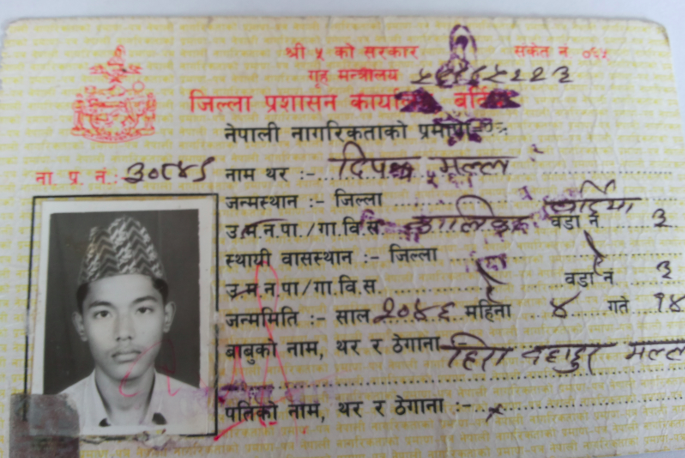 श्री ५ को सरकार संकेत नं
गृह मन्त्रालय
जिल्ला प्रशासन कार्या
नेपाली नागरिकताको प्रमाण
ना. प्र. नं.:
नाम थर :- दिपक मल्ल
जन्मस्थान :- जिल्ला बर्दिया
उ.म.न.पा./गा.वि.स. कालिका वडा नं ३
स्थायी वासस्थान :- जिल्ला
उ.म.न.पा/गा.वि.स. वडा नं ३
जन्ममिति :- साल २०४६ महिना ४ गते १४
बाबुको नाम, थर र ठेगाना हिरा बहादुर मल्ल
पतिको नाम, थर र ठेगाना :- ×